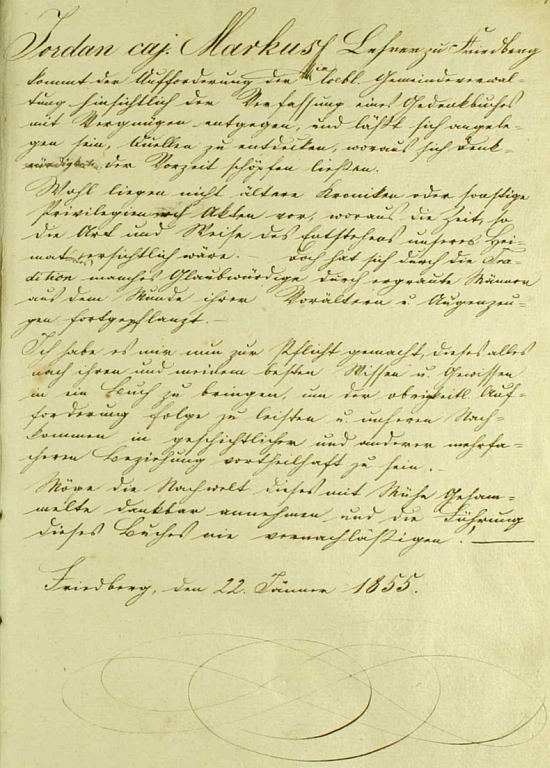 Jordan caj. Markus, Lehrer zu Friedberg
kommt der Aufforderung der löbl. Gemeindeverwal-
tung hinsichtlich der Verfassung eines Gedenkbuches
mit Vergnügen entgegen, und läßt sich angele-
gen sein, Quellen zu entdecken, woraus sich Denk-
würdigkeiten der Vorzeit schöpfen ließen.
Wohl liegen nicht ältere Kroniken oder sonstige
Privilegien Akten vor, woraus die Zeit, so
die Art und Weise des Entstehens unseres Hei-
mat ersichtlich wäre. – Doch hat sich durch die Tra-
dition manches Glaubwürdige durch ergraute Männer
aus dem Munde ihrer Vorältern u. Augenzeu-
gen fortgepflanzt. –
Ich habe es mir nun zur Pflicht gemacht, dieses alles
nach ihren und meinem besten Wissen u. Gewissen
in ein Buch zu bringen, um der obrigkeitl. Auf-
forderung Folge zu leisten u. unseren Nach-
kommen in geschichtlicher und anderer mehrfa-
cheren Beziehung vortheilhaft zu sein. –
Möge die Nachwelt dieses mit Mühe Gesam-
melte dankbar annehmen und die Führung
dieses Buches nie vernachläßigen! —
Friedberg, den 22. Jänner 1855.